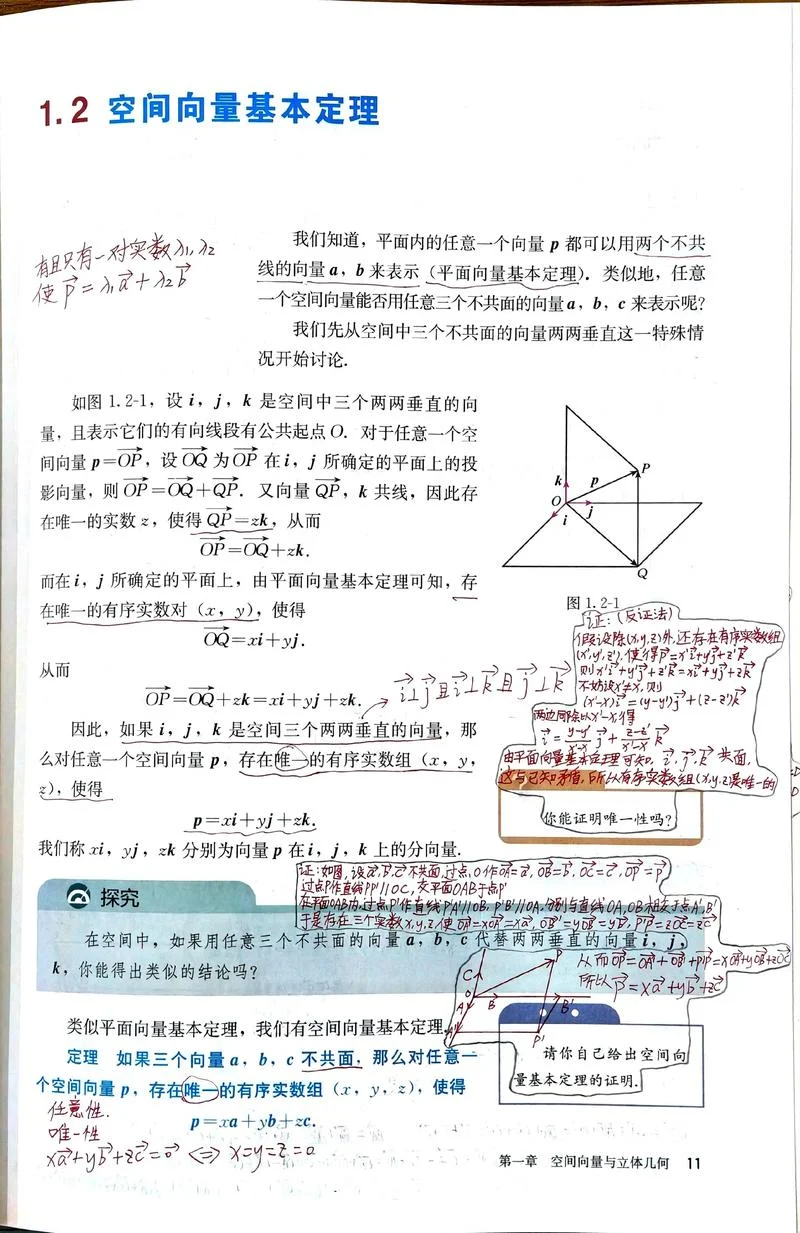 1.2 空间向量基本定理
有且只有一对实数λ₁,λ₂
使p⃗=λ₁a⃗+λ₂b⃗
我们知道，平面内的任意一个向量 p 都可以用两个不共
线的向量 a，b 来表示（平面向量基本定理）．类似地，任意
一个空间向量能否用任意三个不共面的向量 a，b，c 来表示呢？
我们先从空间中三个不共面的向量两两垂直这一特殊情
况开始讨论．
如图 1.2-1，设 i，j，k 是空间中三个两两垂直的向
量，且表示它们的有向线段有公共起点 O．对于任意一个空
间向量 p=OP⃗，设 OQ⃗ 为 OP⃗ 在 i，j 所确定的平面上的投
影向量，则 OP⃗=OQ⃗+QP⃗．又向量 QP⃗，k 共线，因此存
在唯一的实数 z，使得 QP⃗=zk，从而
OP⃗=OQ⃗+zk.
而在 i，j 所确定的平面上，由平面向量基本定理可知，存
在唯一的有序实数对（x，y），使得
OQ⃗=xi+yj.
从而
OP⃗=OQ⃗+zk=xi+yj+zk.
i⃗⊥j⃗且i⃗⊥k⃗且j⃗⊥k⃗
因此，如果 i，j，k 是空间三个两两垂直的向量，那
么对任意一个空间向量 p，存在唯一的有序实数组（x，y，
z），使得
p=xi+yj+zk.
我们称 xi，yj，zk 分别为向量 p 在 i，j，k 上的分向量．
k
p
P
O
j
i
Q
图 1.2-1
证：（反证法）
假设除(x,y,z)外,还存在有序实数组
(x',y',z'),使得p⃗=x'i⃗+y'j⃗+z'k⃗
则x'i⃗+y'j⃗+z'k⃗=xi⃗+yj⃗+zk⃗
不妨设x'≠x,则
(x'-x)i⃗=(y-y')j⃗+(z-z')k⃗
两边同除以x'-x,得
i⃗=(y-y')/(x'-x)j⃗+(z-z')/(x'-x)k⃗
由平面向量基本定理可知, i⃗,j⃗,k⃗共面,
这与已知矛盾,所以有序实数组(x,y,z)是唯一的
你能证明唯一性吗？
证:如图,设a⃗,b⃗,c⃗不共面,过点O作OA⃗=a⃗,OB⃗=b⃗,OC⃗=c⃗,OP⃗=p⃗
过点P作直线PP'∥OC,交平面OAB于点P'
在平面OAB内,过点P'作直线P'A'∥OB,P'B'∥OA,分别与直线OA,OB相交于点A',B'
于是存在三个实数x,y,z,使OA'⃗=xOA⃗=xa⃗,OB'⃗=yOB⃗=yb⃗,P'P⃗=zOC⃗=zc⃗
从而OP⃗=OA'⃗+OB'⃗+P'P⃗=xOA⃗+yOB⃗+zOC⃗
所以p⃗=xa⃗+yb⃗+zc⃗
探究
在空间中，如果用任意三个不共面的向量 a，b，c 代替两两垂直的向量 i，j，
k，你能得出类似的结论吗？
C
P
O
A
B
B'
A'
P'
类似平面向量基本定理，我们有空间向量基本定理．
定理 如果三个向量 a，b，c 不共面，那么对任意一
个空间向量 p，存在唯一的有序实数组（x，y，z），使得
p=xa+yb+zc.
请你自己给出空间向
量基本定理的证明．
任意性.
唯一性
xa⃗+yb⃗+zc⃗=0⃗⇔x=y=z=0
第一章 空间向量与立体几何 11